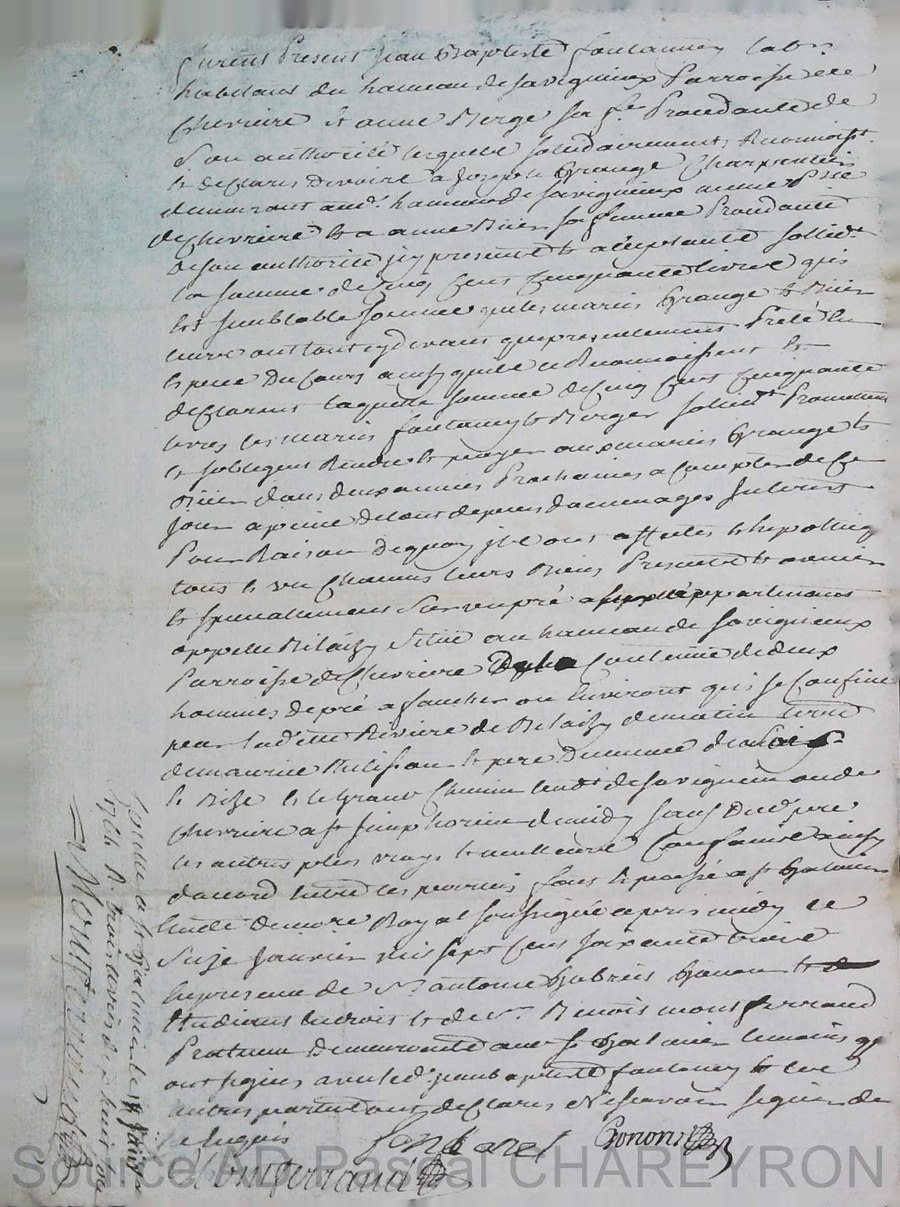 furent Present Jean Baptiste foulanney labr
habitans du hameau de savignieux Parroisse de
Cheviere Et anne Berge sa fe Procedante de
son authorité lesquels solidairement Reconnoist
et declares devoir a Joseph Grange Charpentier
demeurant aud hameau de savignieux meme Psse
de Chevriere et a anne Rivier sa femme Procedante
de son authorité icy presents et acceptants sollidt
la somme de Cinq Cens Cinquante livres qui
Est semblable somme que les maries Grange et Rivier
leurs ont tant cydevant que presentement Preté En
Especes Du Cours ainsy quils le Reconnoissent et
declarent laquelle somme de Cinq Cens Cinquante
livres les maries foulanney et Berger solidt Promettent
et sobligent Rendre et payer aux maries Grange et
Rivier dans deux années Prochaines a Compter de Ce
Jour a peine de tout depens dommages Interest
Pour Raison de quoy ils ont affectés et hipotequé
tous et un Chacuns leurs Biens Presents et avenir
et speciallement Sur un pré appartenant
appellé Relaizy Situé au hameau de savignieux
Parroisse de Chevriere Contenue de deux
hommes de pré a faucher ou Environt qui se Confine
par lad Riviere de Relaizy de matin terre
de maurice Philision et pre Du meme de soir
et Bize et le Grand Chemin tendt de savignieu au de
Chevriere a st simphorien de midy sauf Dud pre
les autres plus vrays et meilleurs Confains ainsy
daccord Entre les parties fait et passé a st Galmier
Etude du nore Royal soussigné apres midy le
Seize Janvier mil sept Cens soixante trois
En presence de Sr antoine Gabriel Gonon
Etudiant En droit et de sr Benoit montferrand
Praticien Demeurants aud st Galmier temoins qui
ont signés avec led jean baptiste foulaney et les
autres parties ont declarés ne scavoir signer de
ce Enquis
Gonon
Montferrand
Scellé a st Galmier le 18 Janv
1764 R. trois livres dix huit sols
Montferrand
Source AD Pascal CHAREYRON